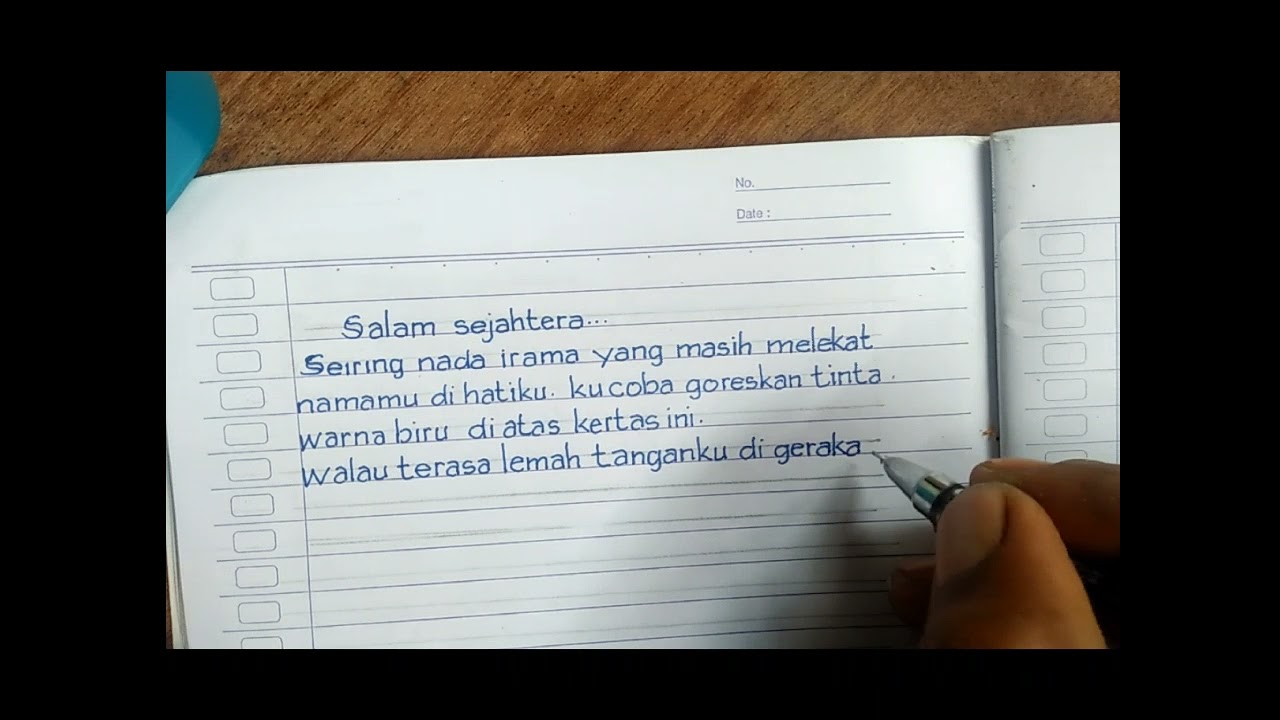 No.
Date :
Salam sejahtera...
Seiring nada irama yang masih melekat
namamu di hatiku. kucoba goreskan tinta.
warna biru di atas kertas ini.
walau terasa lemah tanganku di geraka